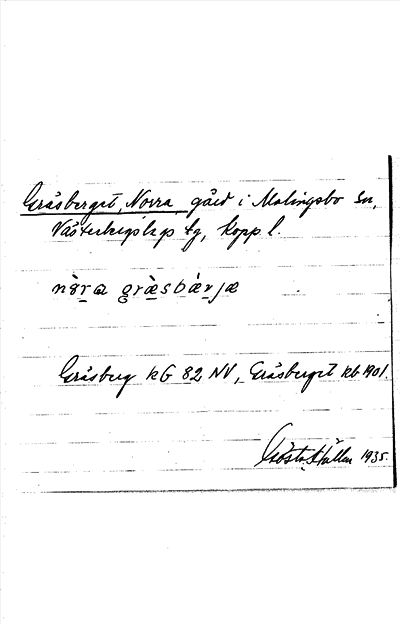 Gräsberget, Norra, gård i Malingsbo sn,
Västerbergslags tg, Kopp l.
nòra græ̀sbærjæ
Gräsberg kG 82 NV, Gräsberget kb 1901.
Gösta Hallen 1935.